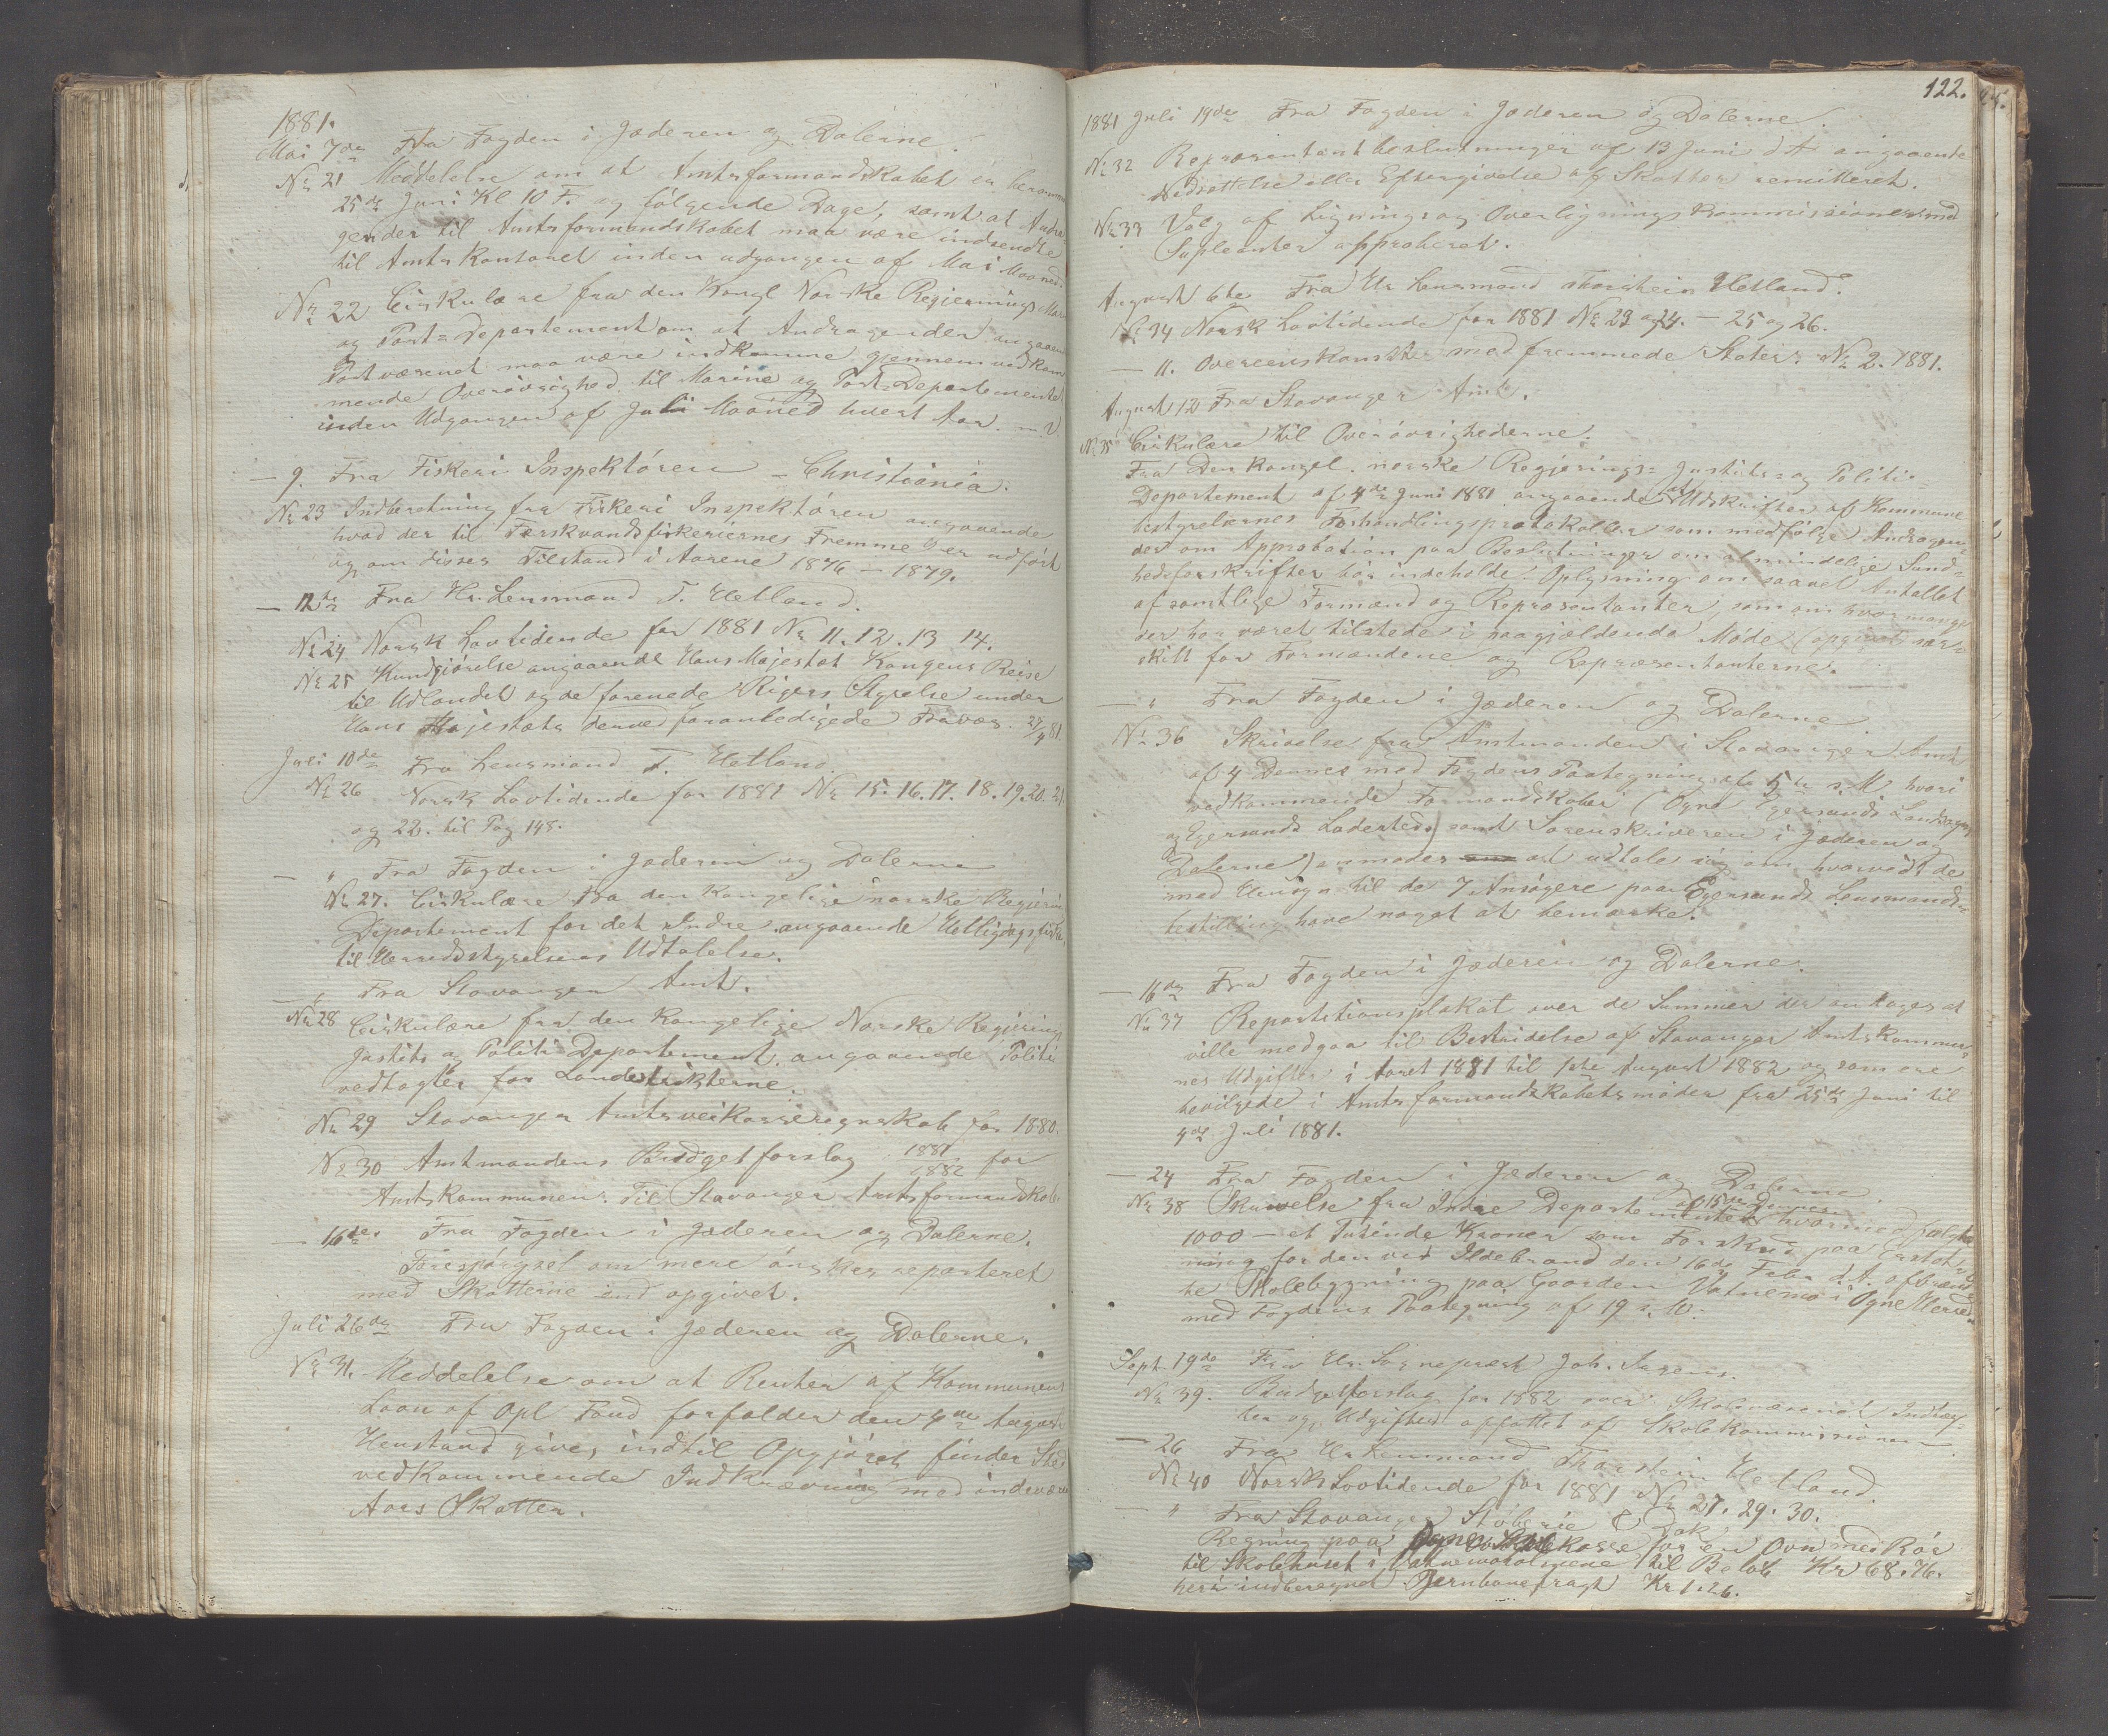 1881.
Mai 7de Fra Fogden i Jæderen og Dalerne.
No 21 Meddelelse om at Amtsformandskabet er beramm
25de Juni Kl 10 F. og følgende Dage, samt at Andra
gender til Amtsformandskabet maa være indsendte
til Amtskontoret inden udgangen af Mai Maaned.
No 22 Cirkulære fra den Kongl Norske Regjerings Mari
og Post=Departement om at Andragender angaaen
Postvæsenet maa være indkomne gjennem vedkom
mende Overøvrighed til Marine og Post=Departementet
inden Udgangen af Juli Maaned hvert Aar.
— 9. Fra Fiskeri Inspektøren – Christiania.
No 23 Indberetning fra Fiskeri Inspektøren angaaende
hvad der til Færskvandsfiskeriernes Fremme er udført
og om disses Tilstand i Aarene 1876 – 1879.
— 12te Fra Hr. Lensmand T. Hetland.
No 24 Norsk Lovtidende for 1881 No 11. 12. 13 14.
No 25 Kundgjørelse angaaende Hans Majestæt Kongens Reise
til Udlandet og de forenede Rigers Styrelse under
Hans Majestæts derved foranledigede Fravær. 27/4 81.
Juli 10de Fra Lensmand T. Hetland
No 26 Norsk Lovtidende for 1881 No 15. 16. 17. 18. 19. 20. 21.
og 22. til Pag 148.
— " Fra Fogden i Jæderen og Dalerne
No 27. Cirkulære fra den kongelige norske Regjerin
Departement for det Indre angaaende Helligdagsfisk
til Herredsstyrelsens Udtalelse.
— " Fra Stavanger Amt.
No 28 Cirkulære fra den kongelige Norske Regjering
Justits og Politi Departement angaaende Politi
vedtægter for Landdistrikterne.
No 29 Stavanger Amts veikasseregnskab for 1880.
No 30 Amtmandens Budgetforslag 1881 1882 for
Amtskommunen. Til Stavanger Amtsformandskab
— 16de Fra Fogden i Jæderen og Dalerne.
Forespørgsel om mere ønskes reparteret
med Skatterne end opgivet.
Juli 26de Fra Fogden i Jæderen og Dalerne.
No 31. Meddelelse om at Renter af Kommunens
Laan af Opl Fond forfalder den 1ste August
Henstand gives indtil Opgjøret finder Sted
vedkommende Indkrævning med indevær
Aars Skatter.
122.
1881 Juli 19de Fra Fogden i Jæderen og Dalerne.
No 32 Repræsentantbeslutninger af 13 Juni d A angaaende
Nedsættelse eller Eftergivelse af Skatter remitteret.
No 33 Valg af Lignings og Overligningskommissioner med
Supleanter approberet.
August 6te Fra Hr Lensmand Thorstein Hetland.
No 34 Norsk Lovtidende for 1881 No 23 og 24. – 25 og 26.
— 11. Overenskomster med fremmede Stater. No 2. 1881.
August 12 Fra Stavanger Amt.
No 35 Cirkulære til Overøvrighederne.
Fra Den kongel. norske Regjerings= Justits= og Politi=
Departement af 4de Juni 1881 angaaende at Udskrifter af Kommune
bestyrelsernes Forhandlingsprotokoller som medfølge Andragen=
der om Approbation paa Beslutninger om almindelige Sund=
hedsforskrifter bør indeholde Oplysning om saavel Antallet
af samtlige Formænd og Repræsentanter, som om hvor mange
der har været tilstede i paagjældende Møde (opgivet sær=
skilt for Formændene og Repræsentanterne.
— " Fra Fogden i Jæderen og Dalerne
No 36 Skrivelse fra Amtmanden i Stavanger Amt
af 4 Dennes med Fogdens Paategning af 5te s. M hvori
vedkommende Formandskaber (Ogne Egersunds Landsogn
og Egersunds Ladested) samt Sorenskriveren i Jæderen og
Dalerne) anmodes at udtale sig om hvorvidt de
med Hensyn til de 7 Ansøgere paa Egersunds Lensmands=
bestilling have noget at bemærke.
— 16de Fra Fogden i Jæderen og Dalerne.
No 37 Repartitionsplakat over de Summer der antages at
ville medgaa til Bestridelse af Stavanger Amtskommu=
nes Udgifter i Aaret 1881 til 1ste August 1882 og som ere
bevilgede i Amtsformandskabets møder fra 25de Juni til
4de Juli 1881.
— 24 Fra Fogden i Jæderen og Dalerne.
No 38 Skrivelse fra Indre Departementet af 15de Dennes hvormed følgte
1000 – et Tusinde Kroner som Forskud paa Erstat=
ning for den ved Ildebrand den 16de Febr d. A. afbrænd=
te Skolebygning paa Gaarden Vatnemo i Ogne Herred
med Fogdens Paategning af 19 s. M.
Sept. 19de Fra Hr. Sognepræst Joh.
No 39. Budgetforslag for 1882 over Skolevæsenet Indtæg=
ter og Udgifter opsattet af Skolekommissionen.
— 26 Fra Hr Lensmand Thorstein Hetland.
No 40 Norsk Lovtidende for 1881 No 27. 29. 30.
— " Fra Stavanger Støberie & Dok
Regning paa Ogne Skolekasse for en Ovn med Rør
til Skolehuset i til Beløb Kr 68.76.
heri indberegnet Jernbanefragt Kr 1.26.